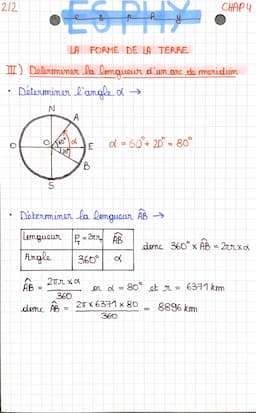 2/2
ES PHY
CHAP 4
e s p h y
LA FORME DE LA TERRE
III) Déterminer la longueur d'un arc de méridien
• Déterminer l'angle α →
N
A
O O 60° α E
20°
B
S
α = 60° + 20° = 80°
• Déterminer la longueur AB →
Longueur P_T = 2πr_T AB
Angle 360° α
donc 360° × AB = 2πr × α
AB = 2πr × α / 360 or α = 80° et r = 6371 km
donc AB = 2π × 6371 × 80 / 360 = 8896 km